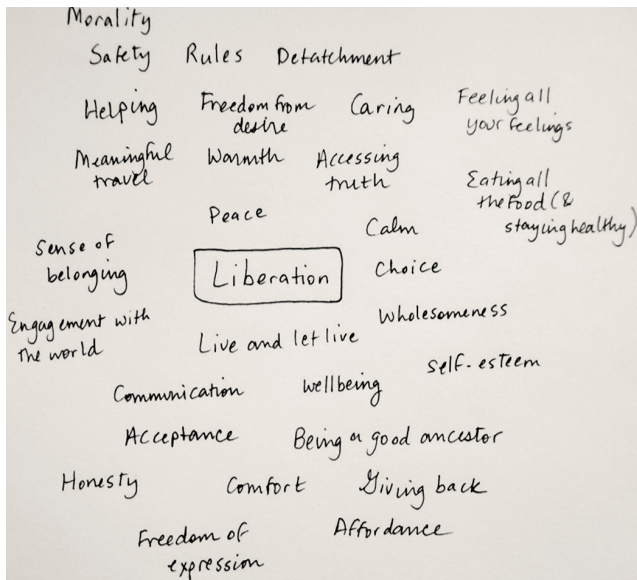 Morality
Safety Rules Detatchment
Helping Freedom from desire Caring Feeling all your feelings
Meaningful travel Warmth Accessing truth Eating all the food (& staying healthy)
Peace Calm
Sense of belonging Liberation Choice
Engagement with the world Live and let live Wholesomeness
Communication Wellbeing Self-esteem
Acceptance Being a good ancestor
Honesty Comfort Giving back
Freedom of expression Affordance